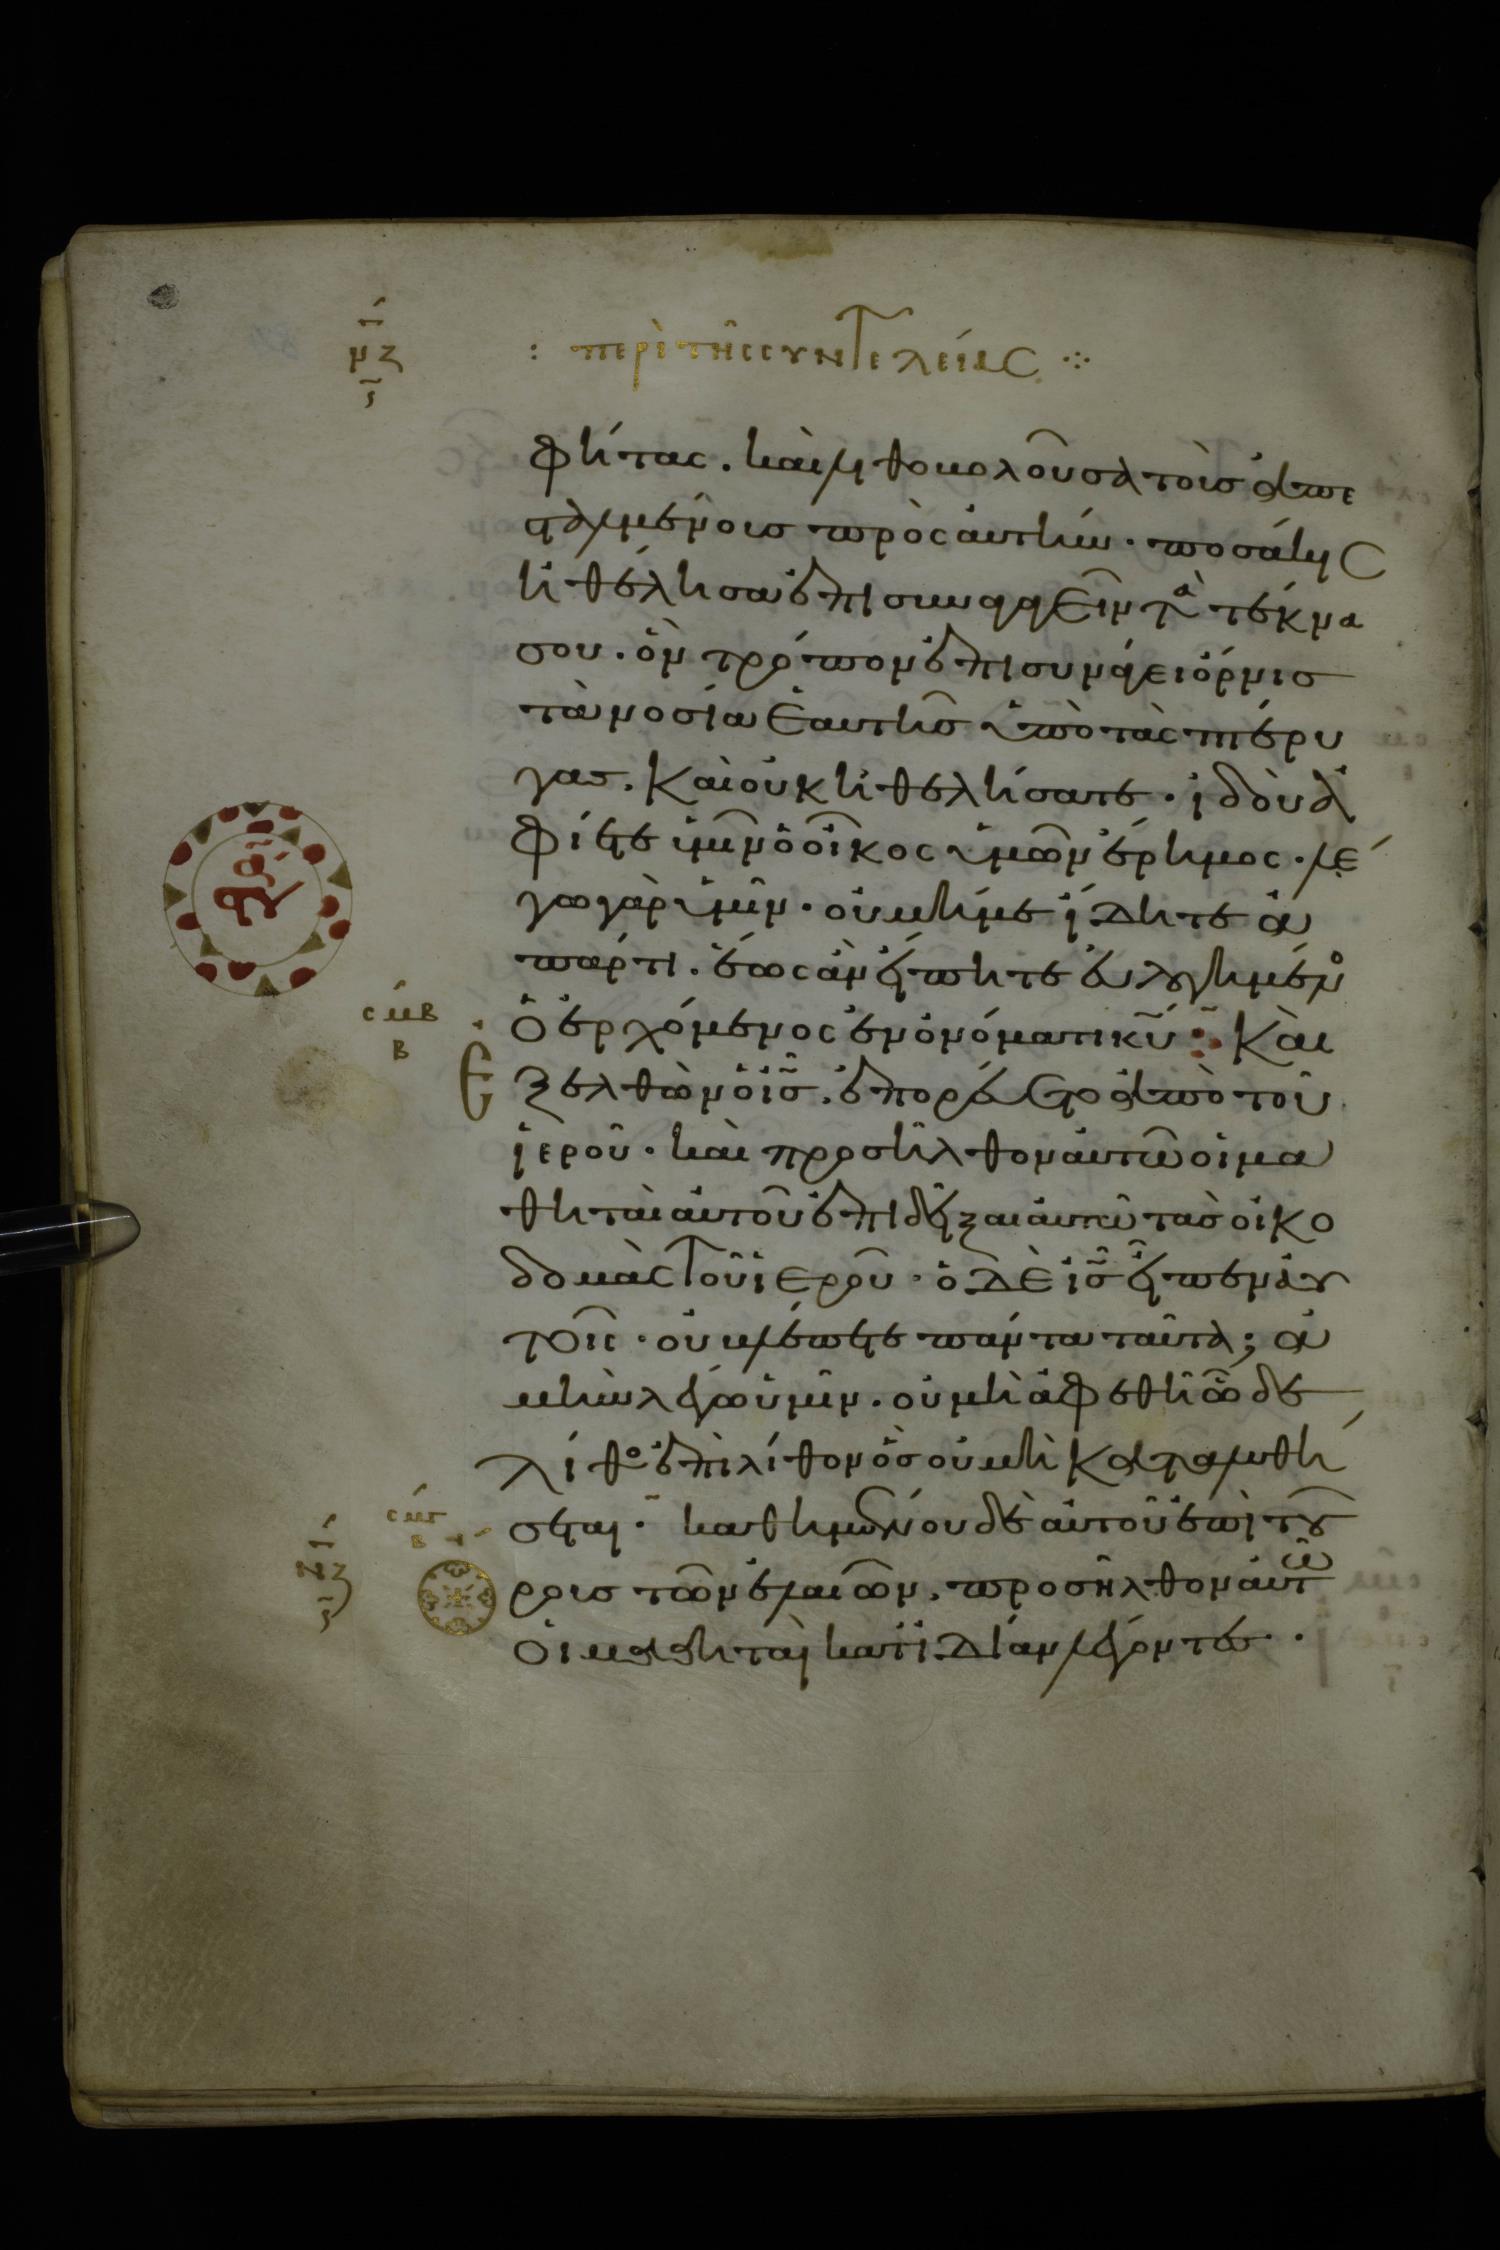 : περὶ τῆς συντελείας ⁘
φήτας. καὶ λιθοβολοῦσα τοὺς ἀπε
σταλμένους πρὸς αὐτήν. ποσάκις
ἠθέλησα ἐπισυναγαγεῖν τὰ τέκνα
σου. ὃν τρόπον ἐπισυνάγει ὄρνις
τὰ νοσσία ἑαυτῆς ὑπὸ τὰς πτέρυ
γας. καὶ οὐκ ἠθελήσατε. ἰδοὺ ἀ
φίεται ὑμῖν ὁ οἶκος ὑμῶν ἔρημος. λέ
γω γὰρ ὑμῖν. οὐ μή με ἴδητε ἀ
πάρτι. ἕως ἂν εἴπητε εὐλογημένο
ὁ ἐρχόμενος ἐν ὀνόματι κυ. Καὶ
ἐξελθὼν ὁ ισ. ἐπορεύετο ἀπὸ τοῦ
ἱεροῦ. καὶ προσῆλθον αὐτῶ οἱ μα
θηταὶ αὐτοῦ ἐπιδεῖξαι αὐτῶ τὰς οἰκο
δομὰς τοῦ ἱεροῦ. ὁ δὲ ισ εἶπεν αὐ
τοῖς. οὐ βλέπετε πάντα ταῦτα; ἀ
μὴν λέγω ὑμῖν. οὐ μὴ ἀφεθῆ ὧδε
λίθος ἐπὶ λίθον ὃς οὐ μὴ καταλυθή
σεται. καθημένου δὲ αὐτοῦ ἐπὶ τοῦ
ὄρους τῶν ἐλαιῶν. προσῆλθον αὐτῶ
οἱ μαθηταὶ κατ ἰδίαν λέγοντες.
σμβ
β
σμγ
β